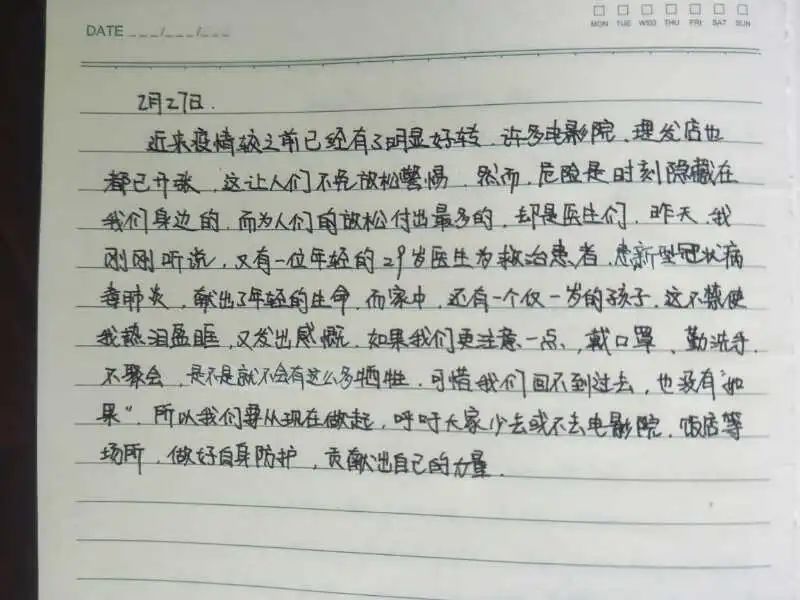 DATE ___/___/___
MON TUE WED THU FRI SAT SUN
2月27日.
近来疫情较之前已经有了明显好转.许多电影院、理发店也
都已开张,这让人们不免放松警惕.然而,危险是时刻隐藏在
我们身边的.而为人们的放松付出最多的,却是医生们.昨天,我
刚刚听说,又有一位年轻的29岁医生为救治患者,患新型冠状病
毒肺炎,献出了年轻的生命.而家中,还有一个仅一岁的孩子.这不禁使
我热泪盈眶,又发出感慨.如果我们更注意一点,戴口罩、勤洗手,
不聚会,是不是就不会有这么多牺牲.可惜我们回不到过去,也没有"如
果".所以我们要从现在做起,呼吁大家少去或不去电影院、饭店等
场所,做好自身防护,贡献出自己的力量.